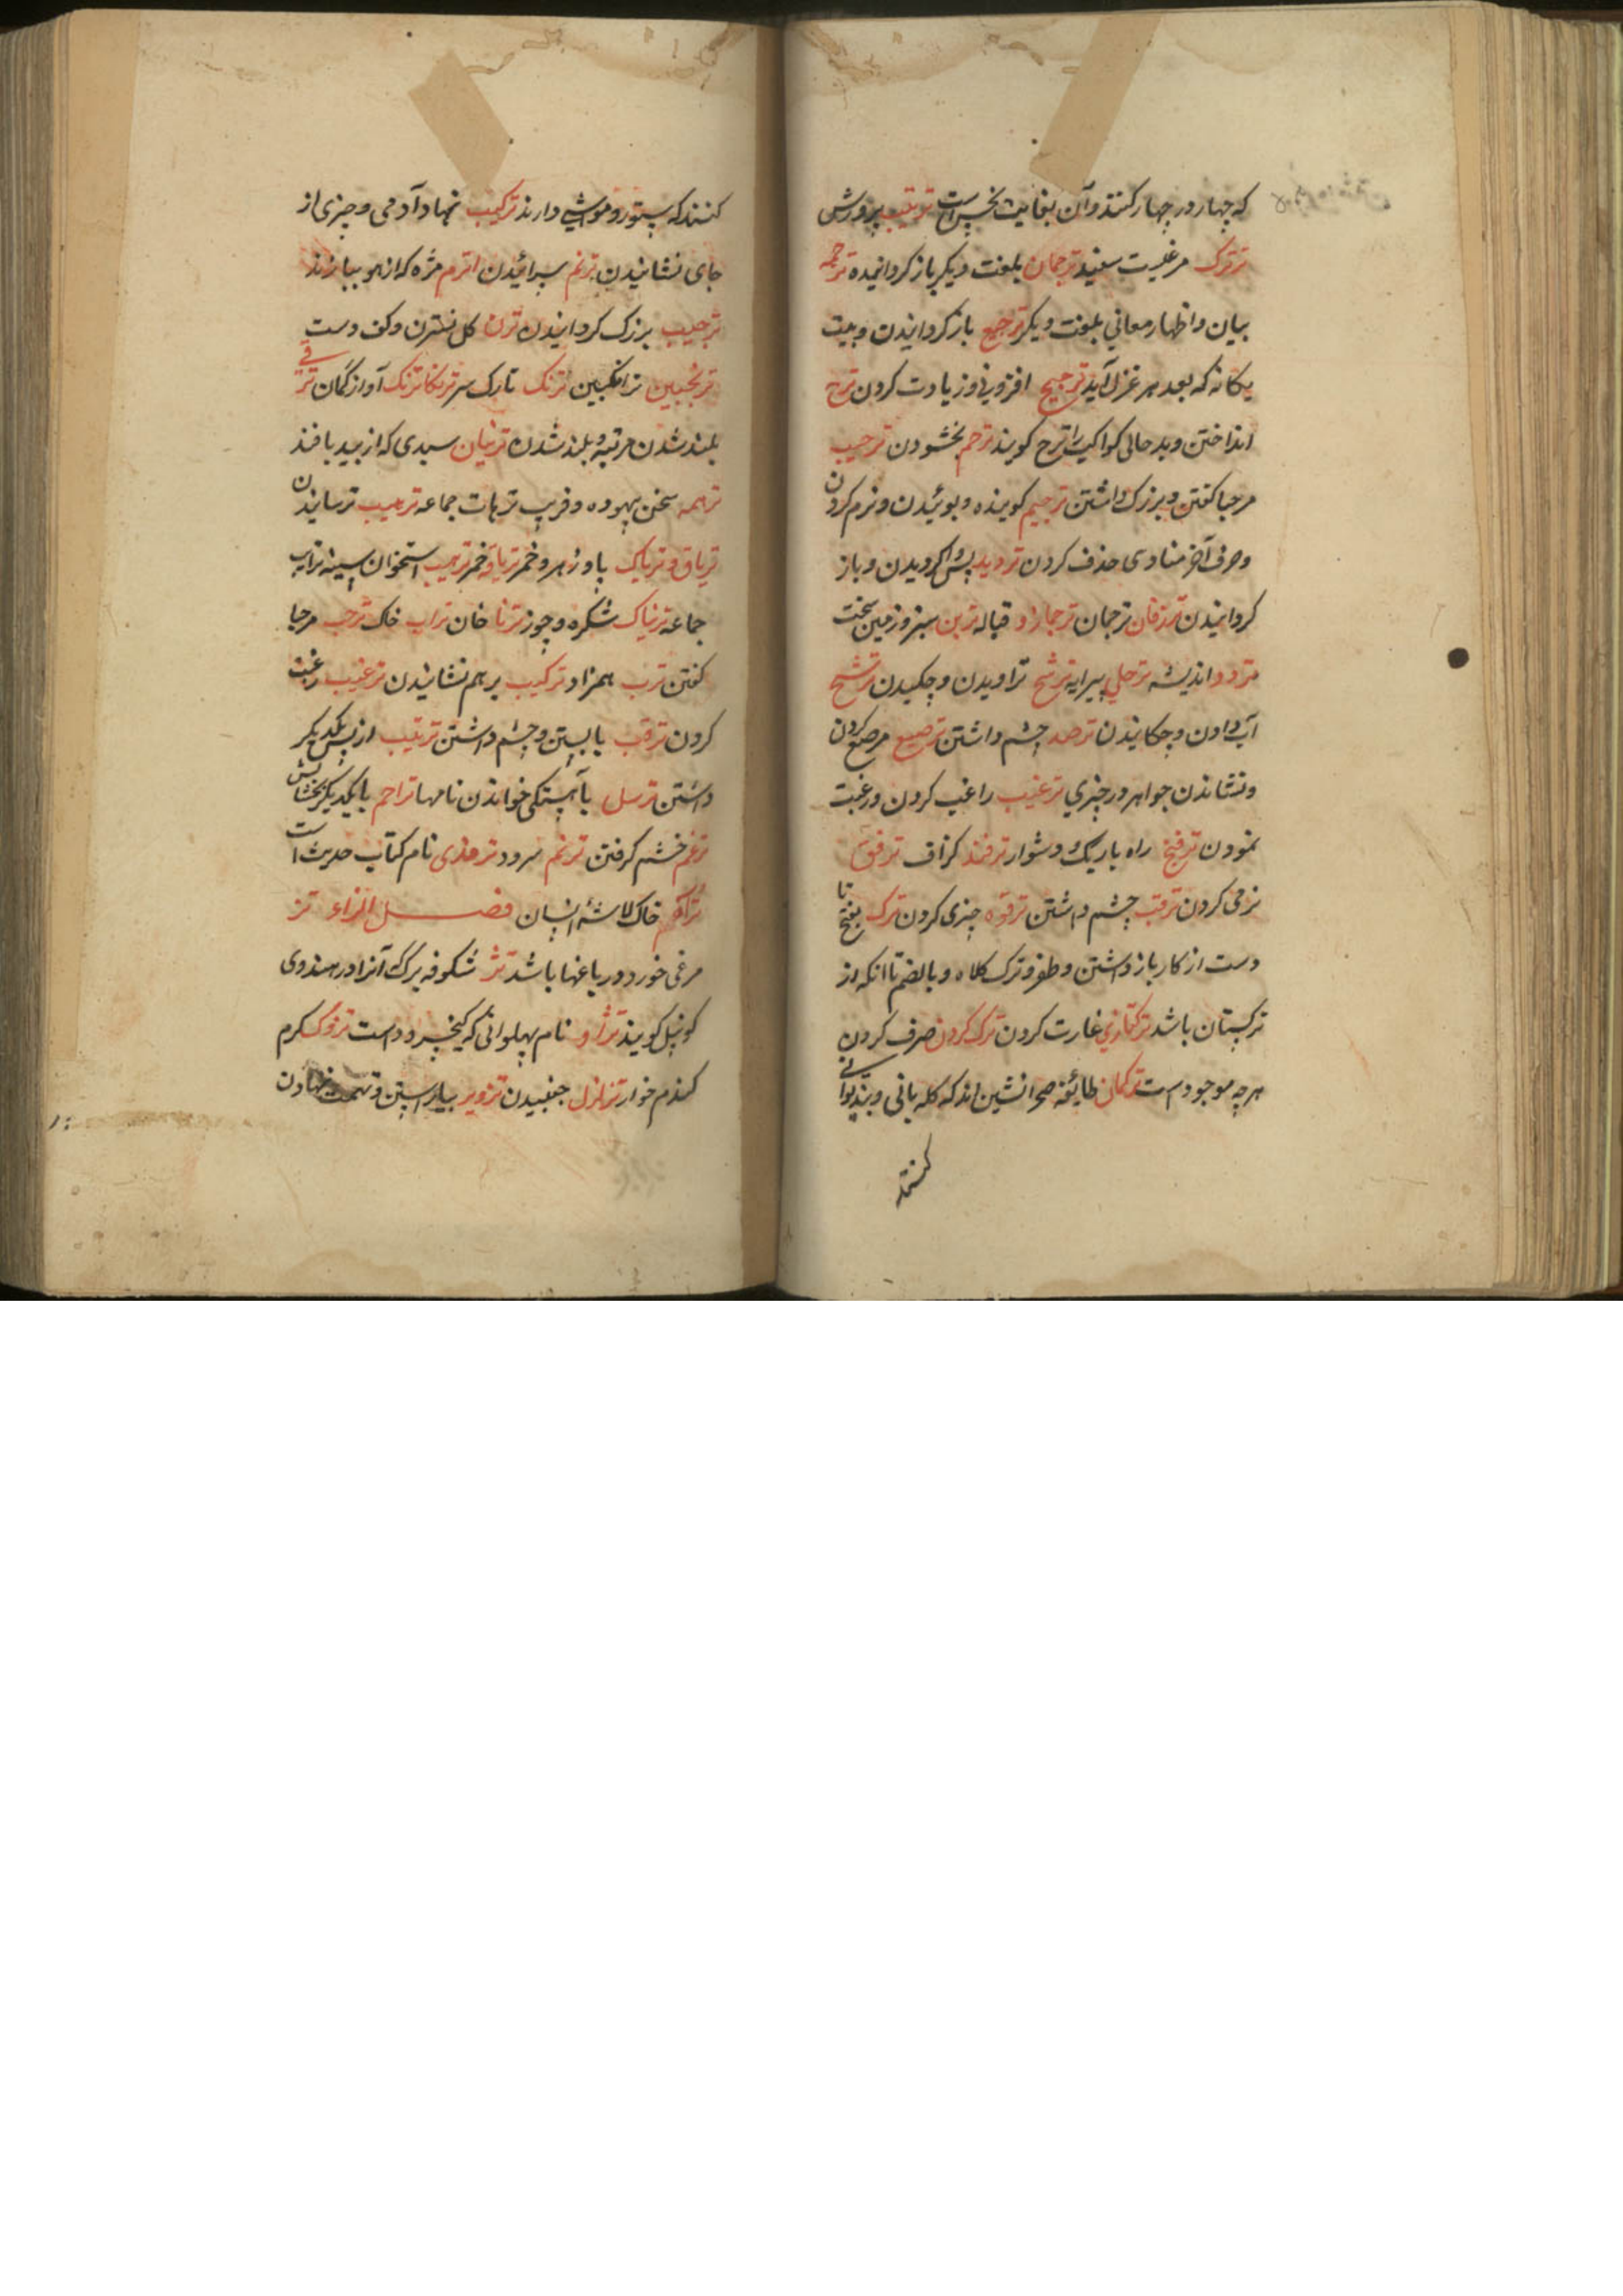 که چهار در چهار کنند و آن بغایت نحس است تربیت پرورش
ترترک مرغیست سفید ترجمان بلغت دیگر باز گردانیده ترجمه
بیان و اظهار معانی بلغت دیگر ترجیع باز گردانیدن و بیت
یکانه که بعد هر غزل آید ترجیح افزونی و زیادت کردن ترح
انداختن و بد حالی کواکب را ترح کویند ترحم بخشودن ترحیب
مرحبا کفتن و بزرک داشتن ترخیم کوینده و بوئیدن و نرم کردن
و حرف آخر منادی حذف کردن تردید پس کردیدن و باز
کردانیدن ترزفان ترجمان ترجمان و قباله ترین سبز و زمین سخت
تردد اندیشه ترحلی پیرایه ترشح تراویدن و چکیدن ترشیح
آب دادن و چکانیدن ترصد چشم داشتن ترصیع مرصع کردن
و نشاندن جواهر در چیزی ترغیب راغب کردن و رغبت
نمودن ترفنج راه باریک و دشوار ترفند کزاف ترفق
نرمی کردن ترقب چشم داشتن ترقوه چیزی کردن ترک بفتح تا
دست از کار باز داشتن و طفر و ترک کلاه و بالضم تا انکه از
ترکستان باشد ترکتازی غارت کردن ترک کردن صرف کردن
هرچه موجود است ترکمان طائفه صحرا نشین اند که کله بانی و
کنند که
کنند که ستور و مواشی دارند ترکیب نهاد آدمی و چیزی از
جای نشانیدن ترنم سرائیدن اترم مژه که از هو ببارند
ترجیب بزرک کردانیدن ترن کل نسترن و کف دست
ترنجبین ترانکبین ترنک تارک سر ترنکاترنک آواز کمان ترقی
بلند شدن مرتبه و بلند شدن ترنیان سبدی که از بید بافند
ترهه سخن بیهوده و فریب ترهات جماعه ترهیب ترسانیدن
تریاق و تریاک پادزهر و خمر تریاقه خمر تریب استخوان سینه ترایب
جماعه ترنیاک شکره و چوز ترنا خان تراب خاک ترحب مرحبا
کفتن ترب همزاد ترکیب بر هم نشانیدن ترغیب رغبت
کردن ترقب بایستن و چشم داشتن ترتیب از پس یکدیکر
داشتن ترسل بآهستکی خواندن نامها تراحم با یکدیکر بخشایش
ترغم خشم کرفتن ترنم سرود ترمذی نام کتاب حدیث است
تراکم خاک لاشه انسان فصل الزاء تز
مرغی خورد در باغها باشد تژ شکوفه برک آنرا در هندوی
کونپل کویند تژاو نام پهلوانی که کیخسرو داست تزوک کرم
کندم خوار تزلزل جنبیدن تزویر بیاراستن و تهمت نهادن